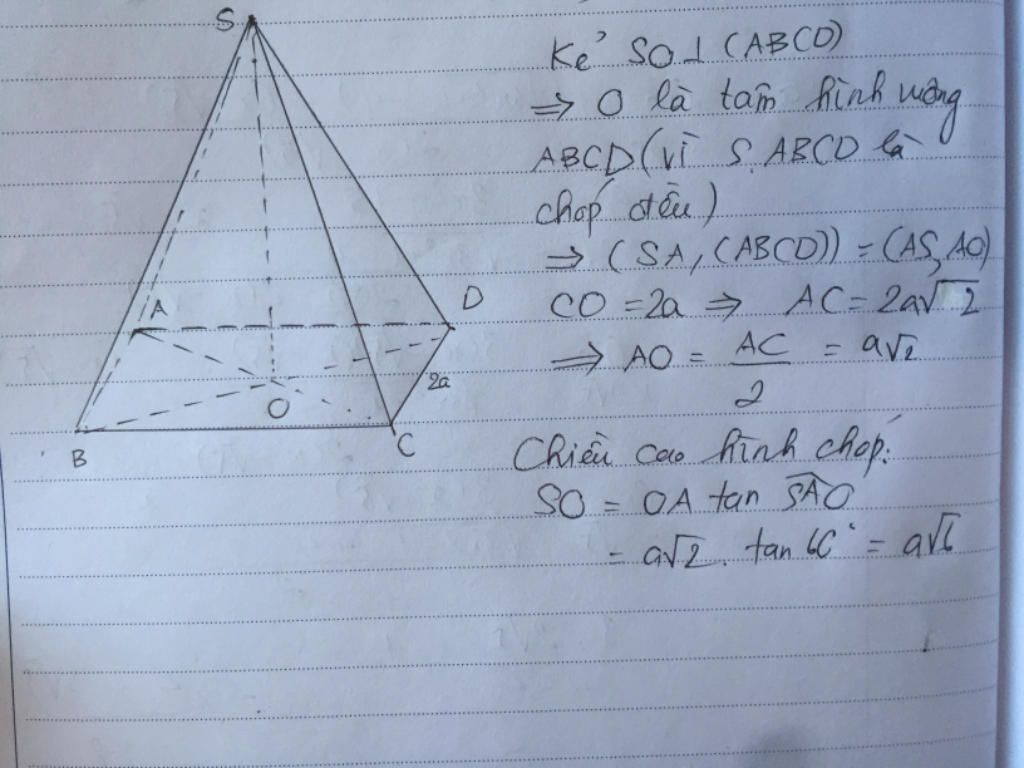 S
A
D
2a
O
B
C
Kẻ SO⊥(ABCD)
=> O là tâm hình vuông
ABCD(vì S.ABCD là
chóp đều)
=> (SA,(ABCD)) = (AS,AO)
CO = 2a => AC = 2a√2
=> AO = AC/2 = a√2
Chiều cao hình chóp:
SO = OA tan SAO
= a√2. tan 60° = a√6